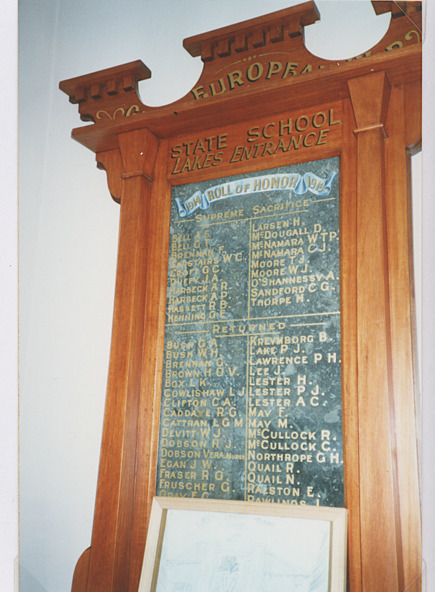 EUROPEA
STATE SCHOOL
LAKES ENTRANCE
1914 ROLL OF HONOR 1918
SUPREME SACRIFICE
BELL A.C.
BELL G.T.
BRENNAN F.
CARSTAIRS W.C.
CROFT G.C.
DUFFY J.A.
HARBECK A.R.
HARBECK A.P.
HASSETT R.B.
HENNING G.E.
LARSEN H.
McDOUGALL D.
McNAMARA W.T.P.
McNAMARA C.J.
MOORE T.J.
MOORE W.J.
O'SHANNESSY A.
SANDFORD C.G.
THORPE H.
RETURNED
BUSH G.A.
BUSH W.H.
BRENNAN G.
BROWN H.O.V.
BOX L.K.
COWLISHAW L.J.
CLIFTON C.A.
CADDAYE R.G.
CATTRAN L.G.M.
DEVITT W.J.
DOBSON R.J.
DOBSON VERA NURSE
EGAN J.W.
FRASER R.G.
FRUSCHER G.
GRAY F.C.
KREYMBORG B.
LAKE P.J.
LAWRENCE P.H.
LEE J.
LESTER H.
LESTER P.J.
LESTER A.C.
MAY F.
MAY M.
McCULLOCK R.
McCULLOCK C.
NORTHROPE G.H.
QUAIL R.
QUAIL N.
RALSTON E.
RAWLINGS J.